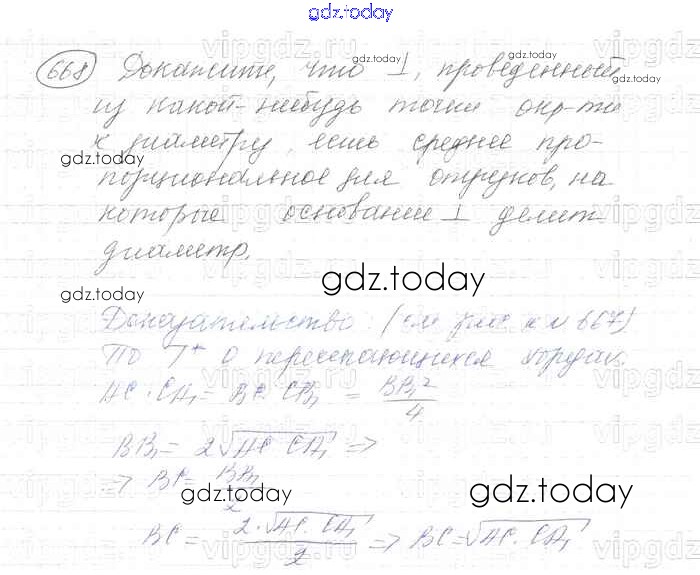 gdz.today
668 Докажите, что ⊥, проведенный
из какой-нибудь точки окр-ти
к диаметру, есть среднее про-
порциональное для отрезков, на
которые основание ⊥ делит
диаметр.
gdz.today
Доказательство: (см рис к № 667)
По Т* о пересекающихся хордах.
AC · CA₁ = BC · CB₁ = BB₁²/4
BB₁ = 2√AC · CA₁ =>
=> BC = BB₁/2
gdz.today gdz.today
BC = 2·√AC · CA₁/2 => BC = √AC · CA₁